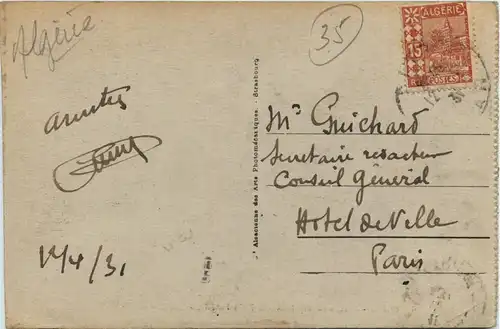 Algérie
35
ALGÉRIE
15c
POSTES
Amitiés
12/4/31
Alsacienne des Arts Photomécaniques - Strasbourg
Mr Guichard
Secretaire redacteur
Conseil Général
Hotel de Ville
Paris